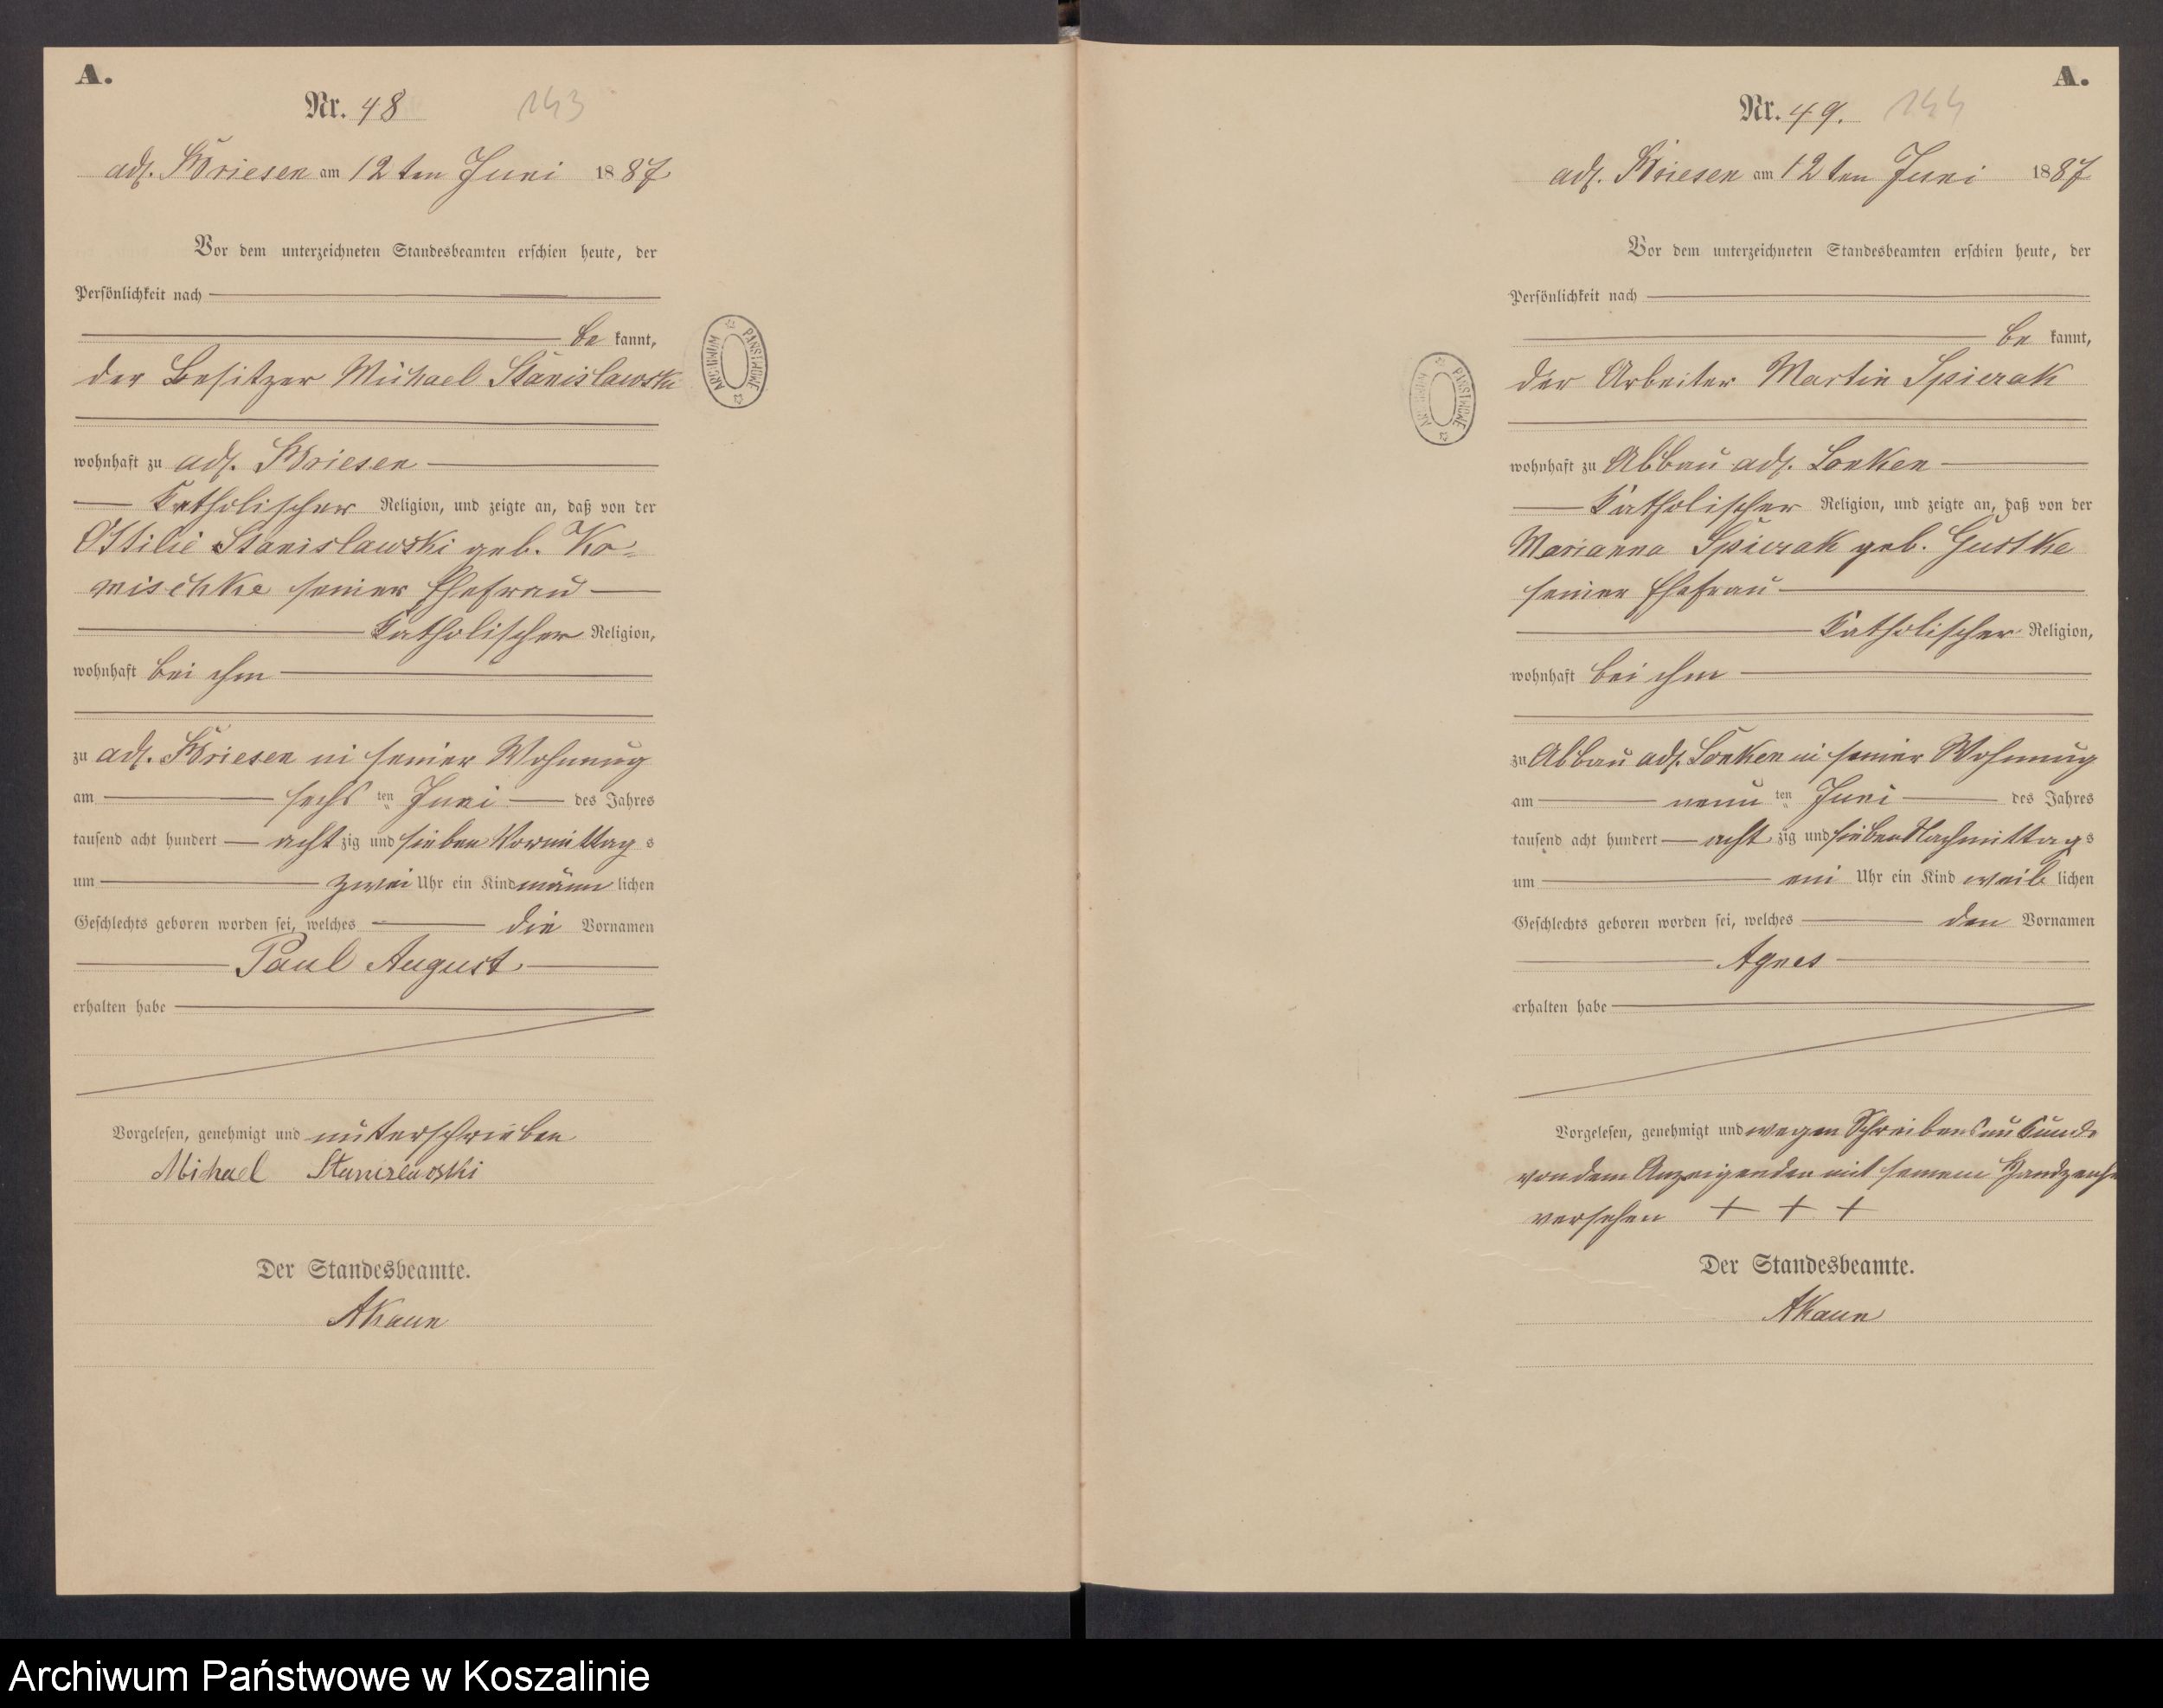 A.
Nr. 48
143
adl. Briesen am 12ten Juni 1887
Vor dem unterzeichneten Standesbeamten erschien heute, der
Persönlichkeit nach
be kannt,
der Besitzer Michael Stanislawski
wohnhaft zu adl. Briesen
katholischer Religion, und zeigte an, daß von der
Ottilie Stanislawski geb. Ko-
mischke seiner Ehefrau
katholischer Religion,
wohnhaft bei ihm
zu adl. Briesen in seiner Wohnung
am sechs ten Juni des Jahres
tausend acht hundert acht zig und sieben Vormittag s
um zwei Uhr ein Kind männ lichen
Geschlechts geboren worden sei, welches die Vornamen
Paul August
erhalten habe
Vorgelesen, genehmigt und unterschrieben
Michael Stanislawski
Der Standesbeamte.
AKaun
ARCHIWUM PAŃSTWOWE
A.
Nr. 49.
144
adl. Briesen am 12ten Juni 1887
Vor dem unterzeichneten Standesbeamten erschien heute, der
Persönlichkeit nach
be kannt,
der Arbeiter Martin Spierak
wohnhaft zu Abbau adl. Lonken
katholischer Religion, und zeigte an, daß von der
Marianna Spierak geb. Gustke
seiner Ehefrau
katholischer Religion,
wohnhaft bei ihm
zu Abbau adl. Lonken in seiner Wohnung
am neun ten Juni des Jahres
tausend acht hundert acht zig und sieben Nachmittag s
um ein Uhr ein Kind weib lichen
Geschlechts geboren worden sei, welches den Vornamen
Agnes
erhalten habe
Vorgelesen, genehmigt und wegen Schreibensunkunde
von dem Anzeigenden mit seinem Handzeichen
versehen + + +
Der Standesbeamte.
AKaun
ARCHIWUM PAŃSTWOWE
Archiwum Państwowe w Koszalinie